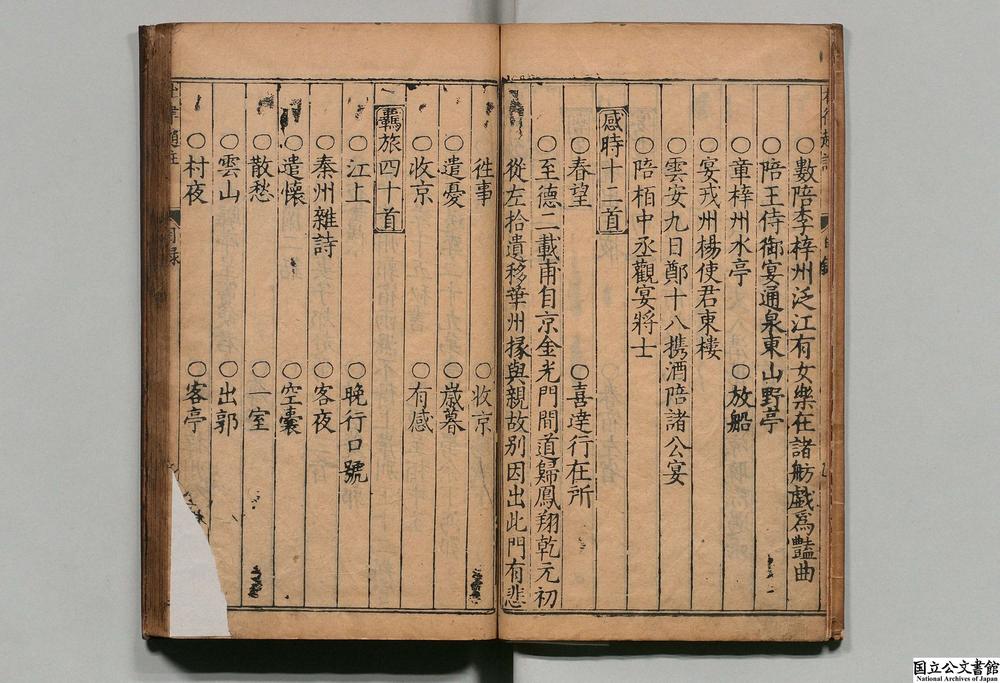 ○數陪李梓州泛江有女樂在諸舫戲爲豔曲
○陪王侍御宴通泉東山野亭
○章梓州水亭 ○放船
○宴戎州楊使君東樓
○雲安九日鄭十八携酒陪諸公宴
○陪栢中丞觀宴將士
感時十二首
○春望 ○喜達行在所
○至德二載甫自京金光門間道歸鳳翔乾元初
從左拾遺移華州掾與親故别因出此門有悲
徃事 ○收京
○遣憂 ○嵗暮
○收京 ○有感
羈旅四十首
○江上 ○晚行口號
○秦州雜詩 ○客夜
○遣懷 ○空囊
○散愁 ○一室
○雲山 ○出郭
○村夜 ○客亭
目錄
国立公文書館
National Archives of Japan